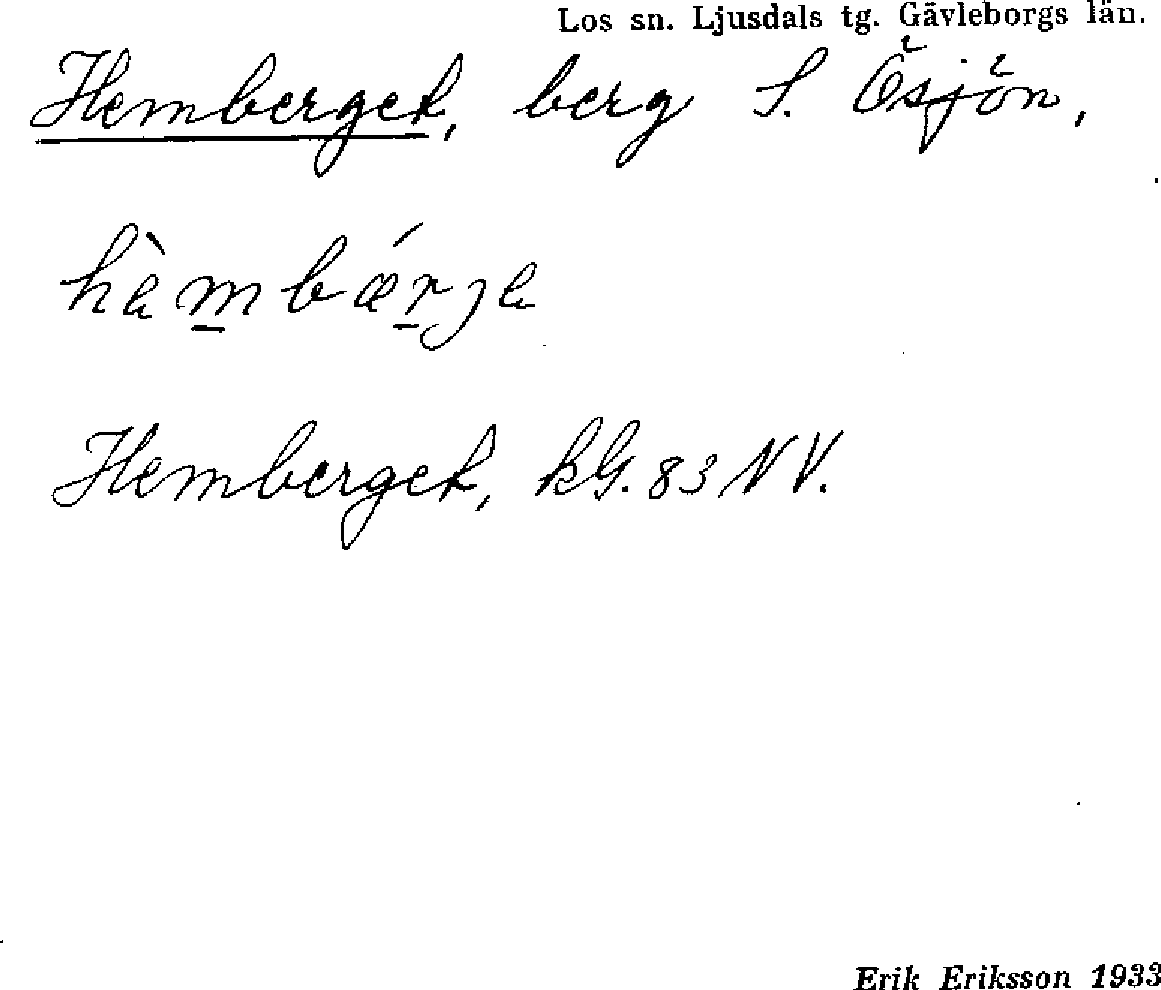 Los sn. Ljusdals tg. Gävleborgs län.
Hemberget, berg S. Ösjön,
hèm̲bǽr̲je
Hemberget, kG. 83 NV.
Erik Eriksson 1933